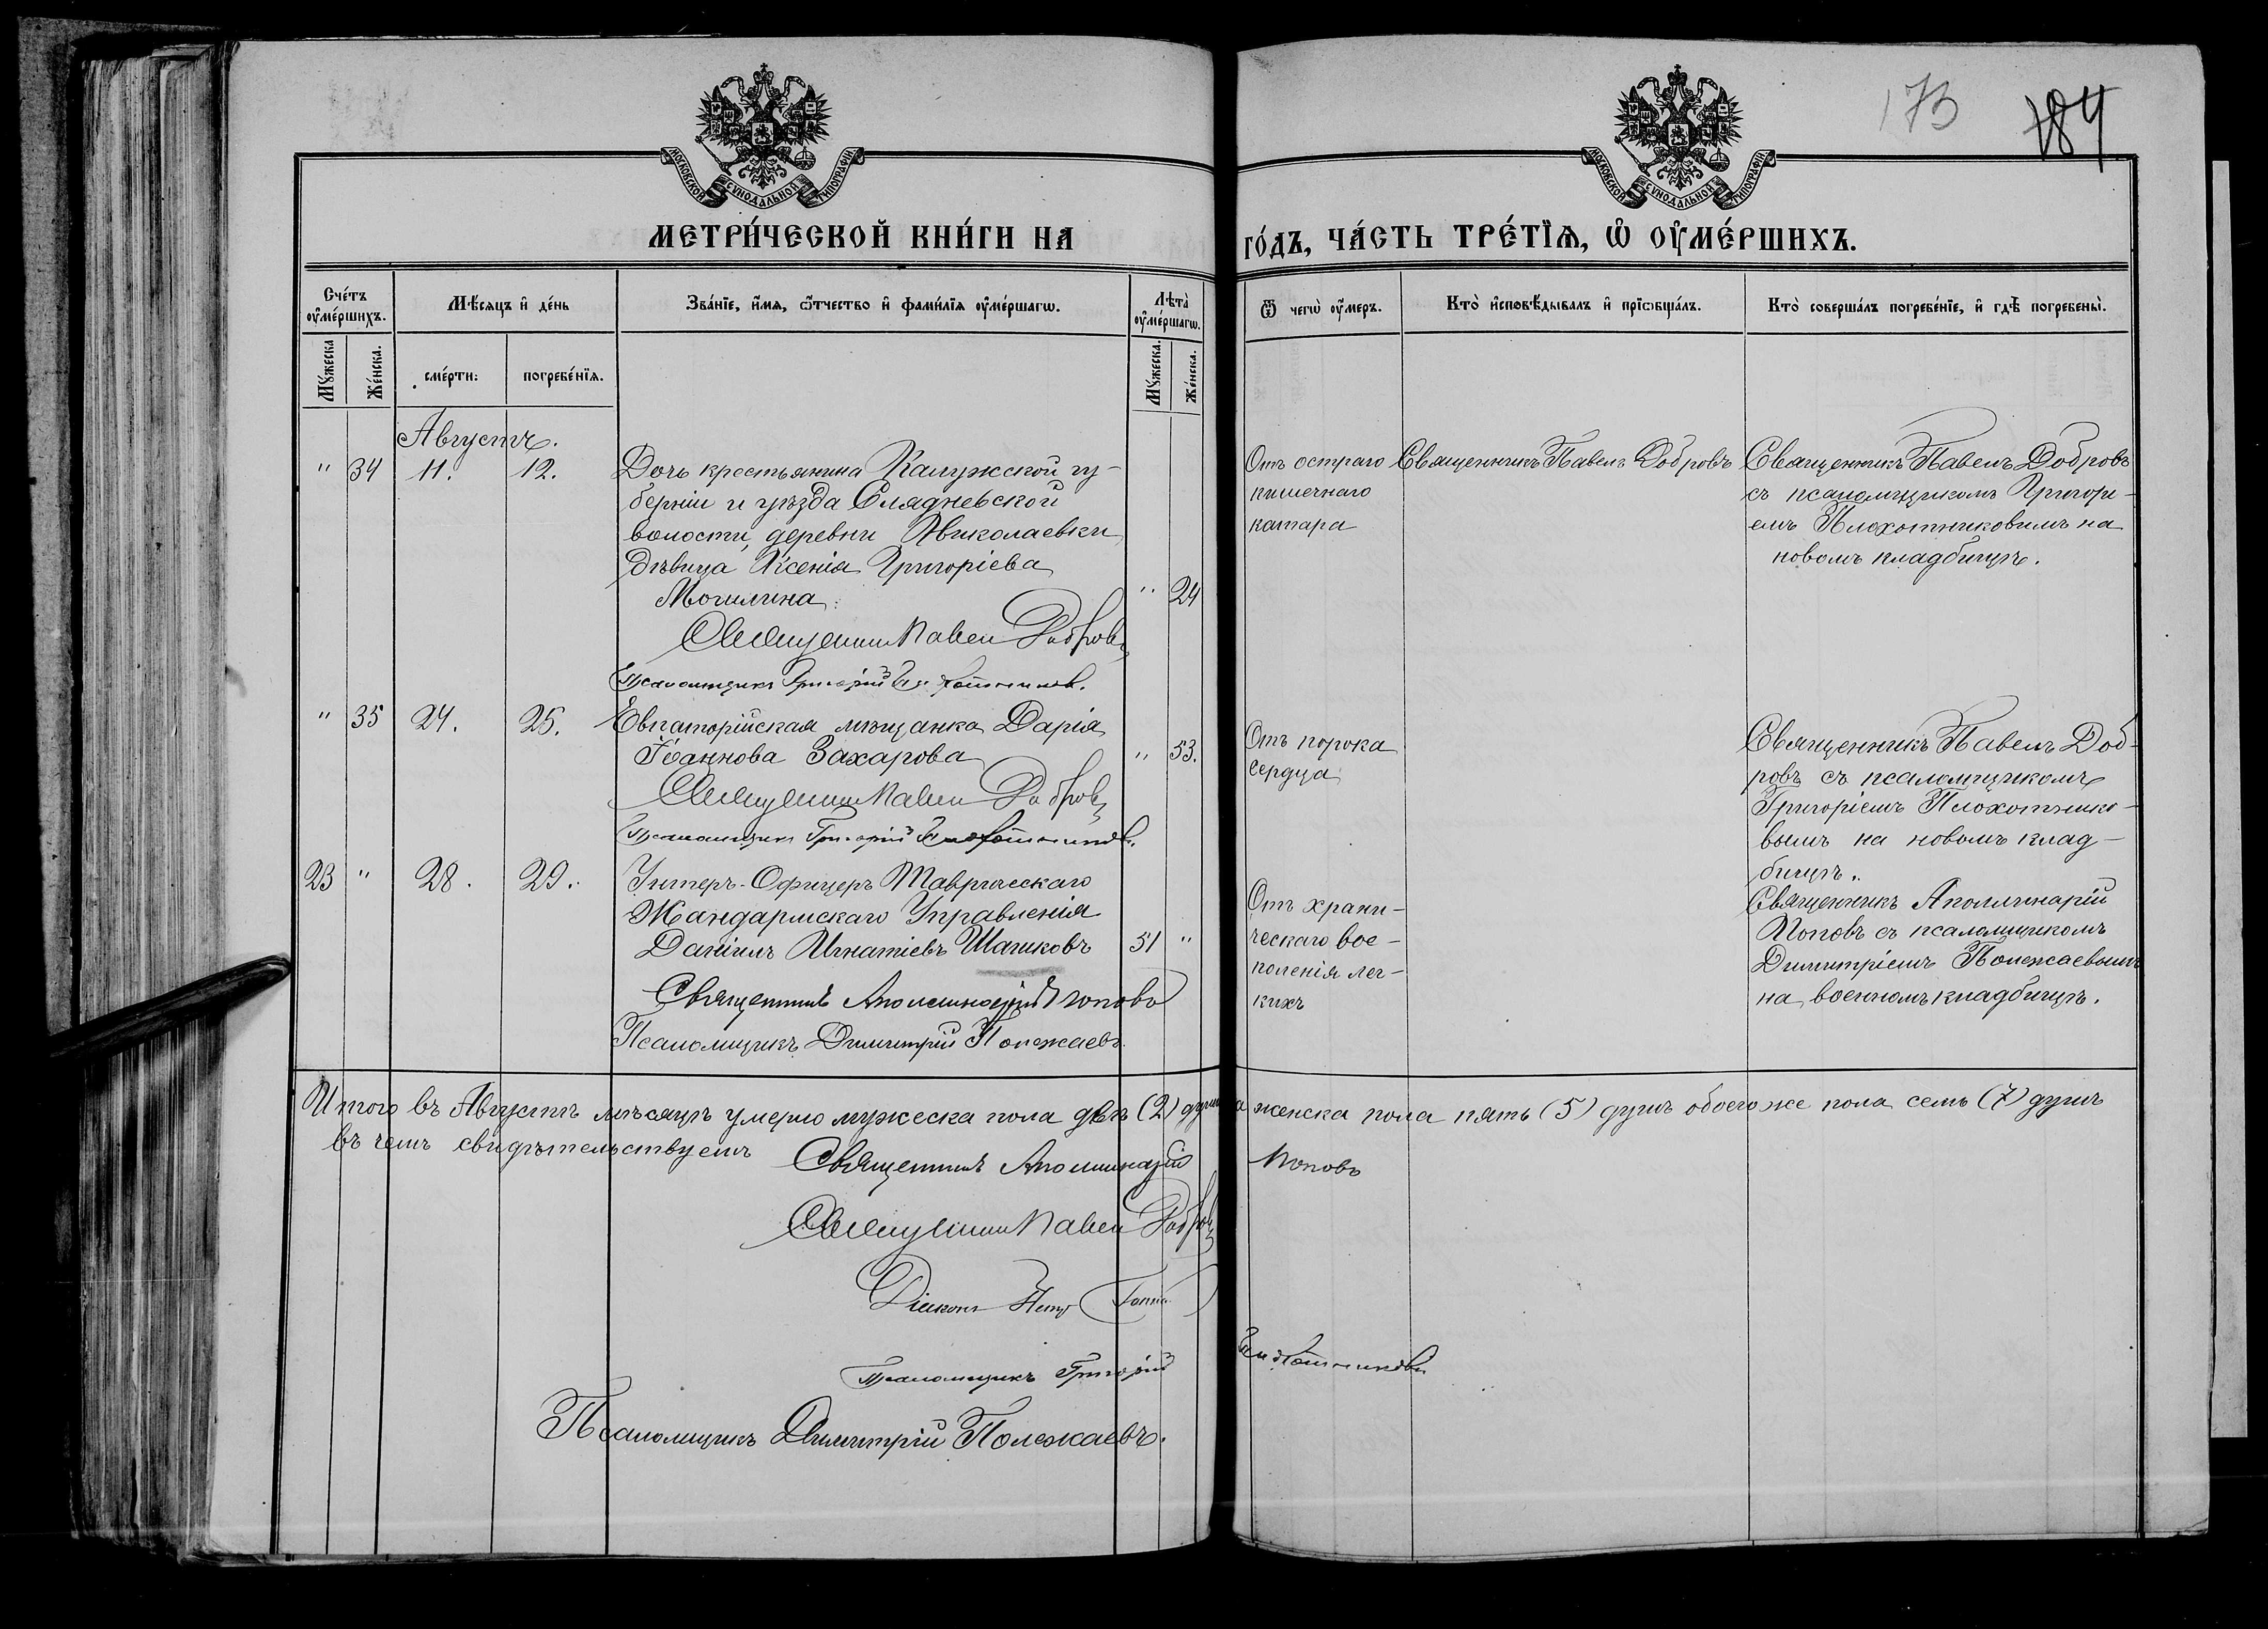 173
184
МОСКОВСКОЙ СѴНОДАЛЬНОЙ ТИПОГРАФІИ
МОСКОВСКОЙ СѴНОДАЛЬНОЙ ТИПОГРАФІИ
МЕТРИ́ЧЕСКОЙ КНИ́ГИ НА
ГО́ДЪ, ЧА́СТЬ ТРЕ́ТЇѦ, Ѡ҆ ОУ҆МЕ́РШИХЪ.
Сче́тъ оу҆ме́ршихъ.
Мѣ́сяцъ и҆ де́нь
Зва́нїе, и҆́мя, ѻ҆́тчество и҆ фами́лїя оу҆ме́ршагѡ.
Лѣта̀ оу҆ме́ршагѡ.
Ѿ чегѡ̀ оу҆́меръ.
Кто̀ и҆сповѣ́дывалъ и҆ прїѡбща́лъ.
Кто̀ соверша́лъ погребе́нїе, и҆ гдѣ̀ погребены̀.
Мꙋ́жеска
Же́нска.
сме́рти:
погребе́нїя.
Мꙋ́жеска.
Же́нска.
Августъ.
" 34 11. 12.
Дочь крестьянина Калужской гу-
берніи и уѣзда Слядневской
волости, деревни Николаевки
дѣвица Ксенія Григоріева
Могилина
" 24
Священникъ Павелъ Добровъ
Псаломщикъ Григорій Плохотниковъ.
Отъ остраго
кишечнаго
катара
Священникъ Павелъ Добровъ
Священникъ Павелъ Добровъ
съ псаломщикомъ Григорі-
емъ Плохотниковымъ на
новомъ кладбищѣ.
" 35 24. 25.
Евпаторійская мѣщанка Дарія
Іоаннова Захарова
" 53.
Священникъ Павелъ Добровъ
Псаломщикъ Григорій Плохотниковъ.
Отъ порока
сердца
Священникъ Павелъ Доб-
ровъ съ псаломщикомъ
Григоріемъ Плохотнико-
вымъ на новомъ клад-
бищѣ.
23 " 28. 29.
Унтеръ-Офицеръ Таврическаго
Жандармскаго Управленія
Даніилъ Игнатіевъ Шашковъ
51 "
Священникъ Аполлинарій Поповъ
Псаломщикъ Димитрій Полежаевъ.
Отъ храни-
ческаго вос-
поленія лег-
кихъ
Священникъ Аполлинарій
Поповъ съ псаломщикомъ
Димитріемъ Полежаевымъ
на военномъ кладбищѣ.
Итого въ Августѣ мѣсяцѣ умерло мужеска пола двѣ (2) души а женска пола пять (5) душъ обоего же пола семь (7) душъ
въ чемъ свидѣтельствуемъ
Священникъ Аполлинарій Поповъ
Священникъ Павелъ Добровъ
Діаконъ Петр
Псаломщикъ Григорій Плохотниковъ
Псаломщикъ Димитрій Полежаевъ.